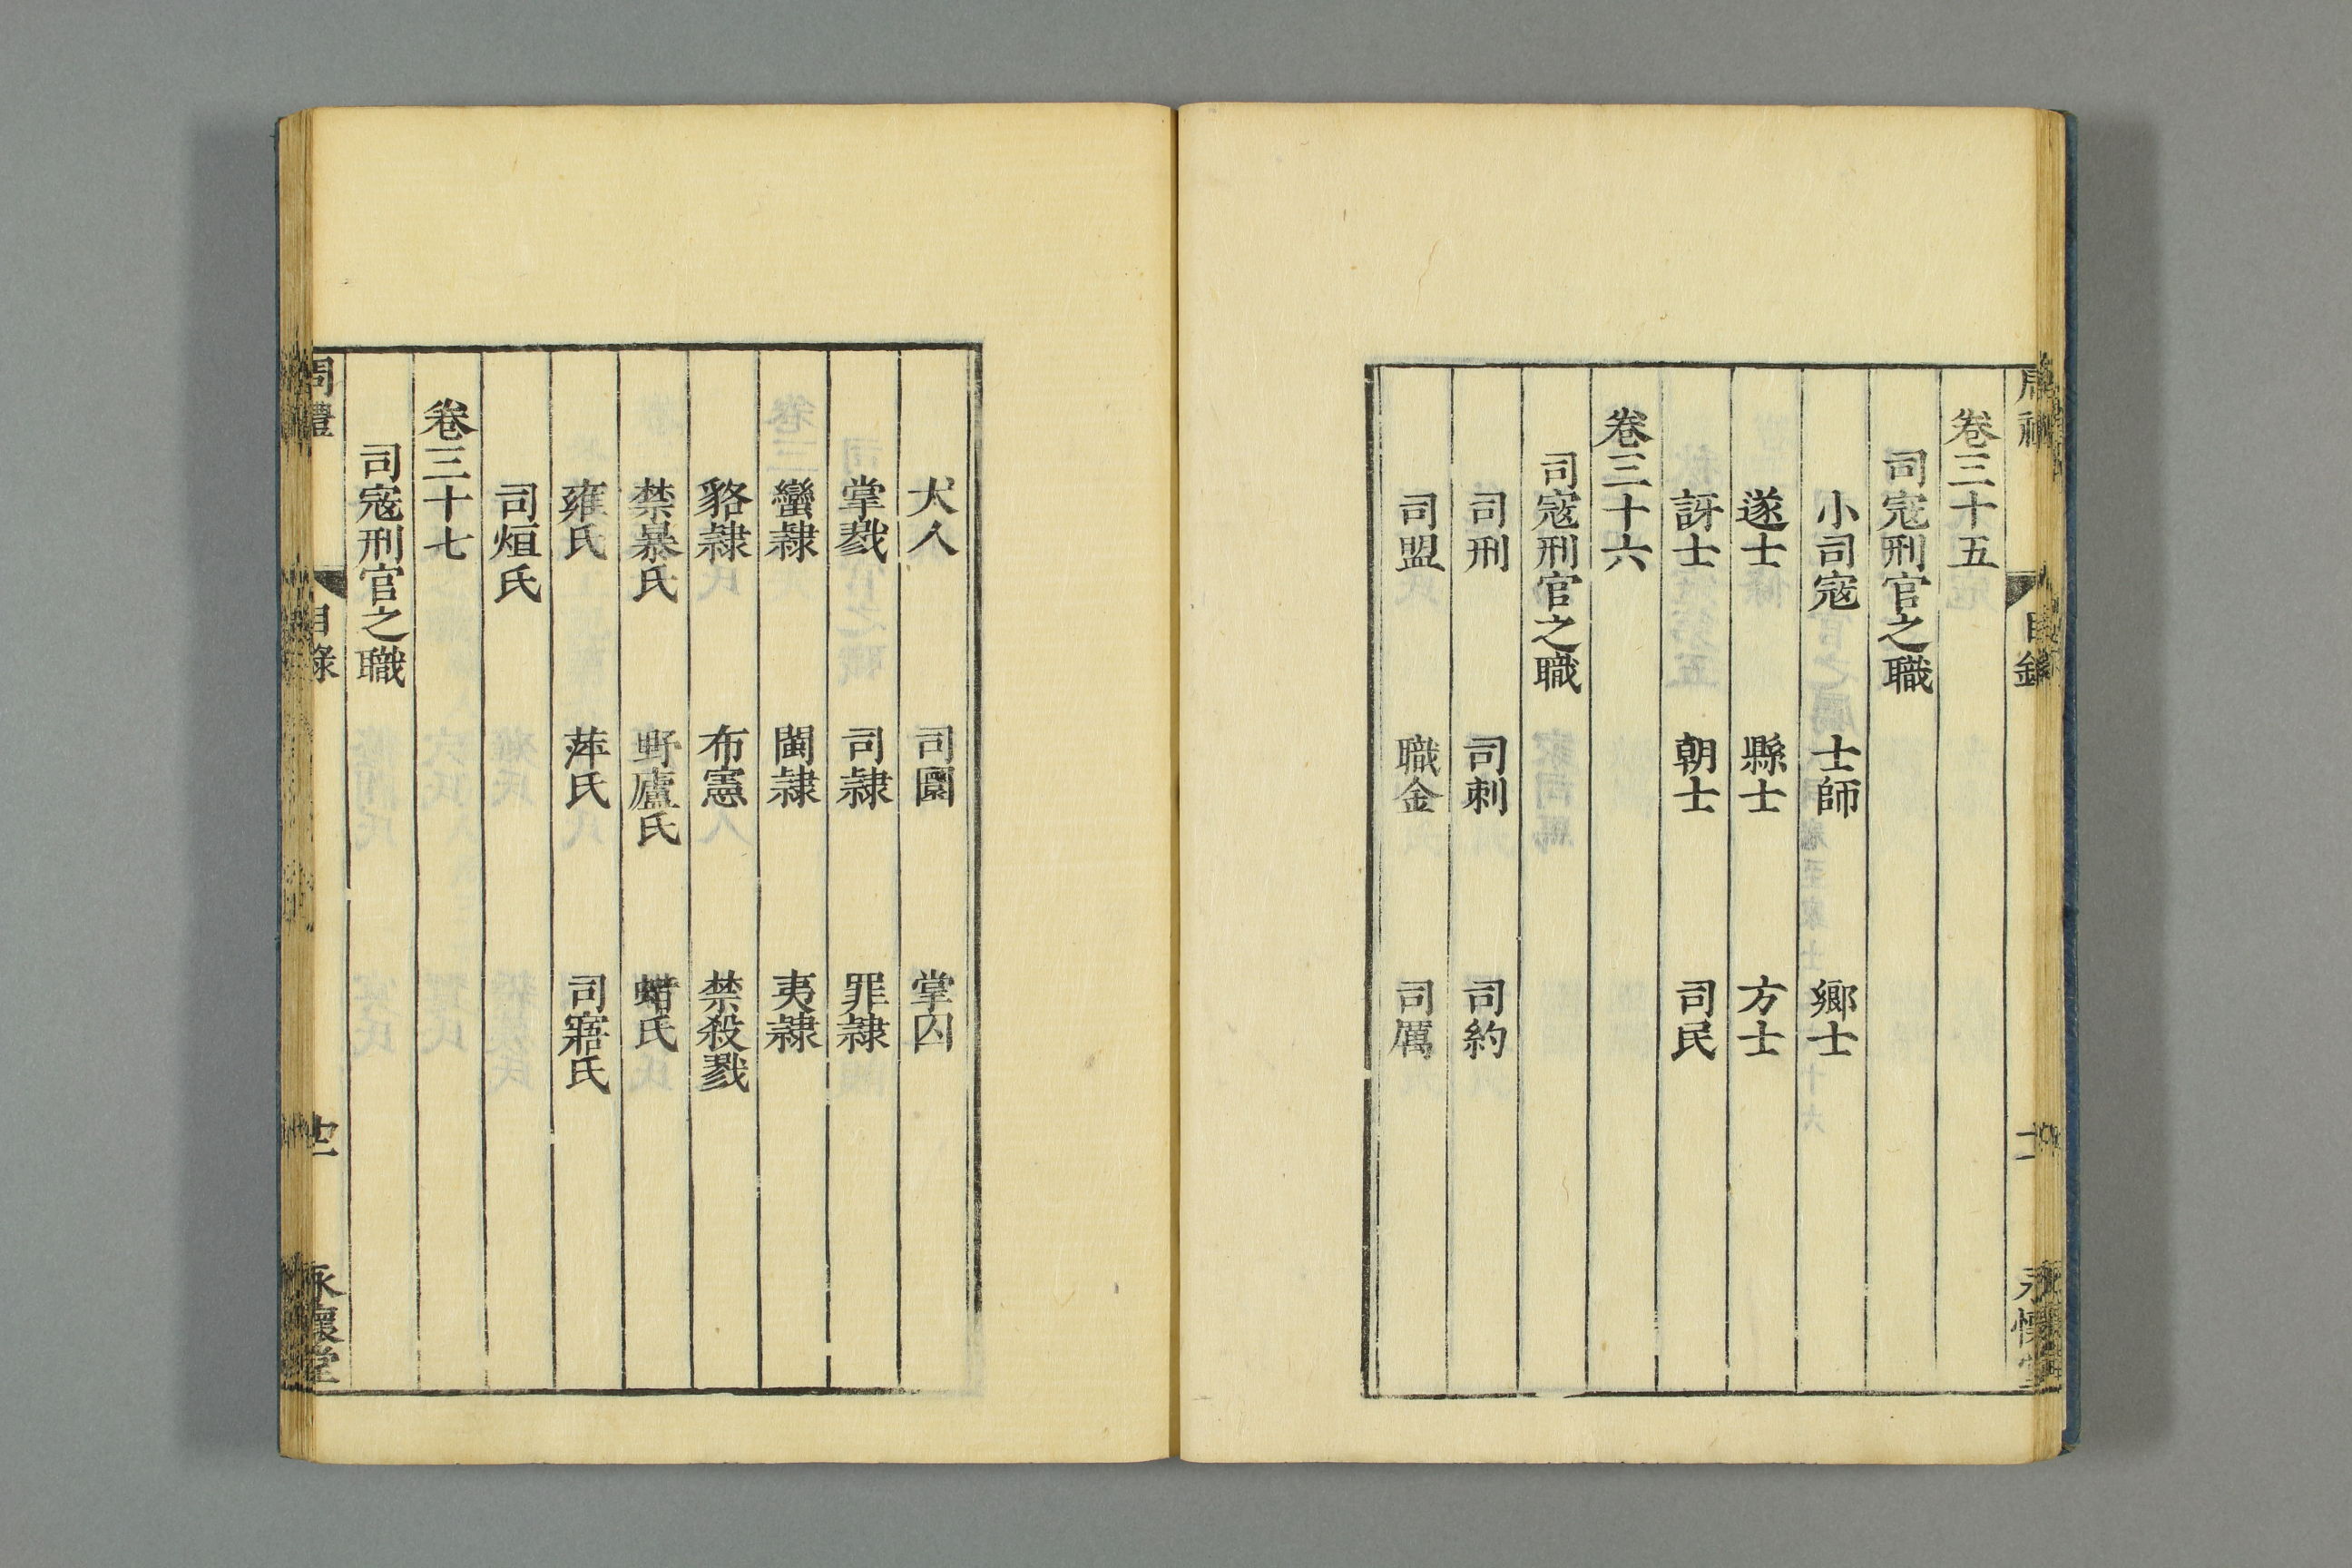 卷三十五
司寇刑官之職
小司寇　士師　鄉士
遂士　縣士　方士
訝士　朝士　司民
卷三十六
司寇刑官之職
司刑　司刺　司約
司盟　職金　司厲
犬人　司圜　掌囚
掌戮　司隸　罪隸
蠻隸　閩隸　夷隸
貉隸　布憲　禁殺戮
禁暴氏　野廬氏　蜡氏
雍氏　萍氏　司寤氏
司烜氏
卷三十七
司寇刑官之職
周禮　目錄　永懷堂